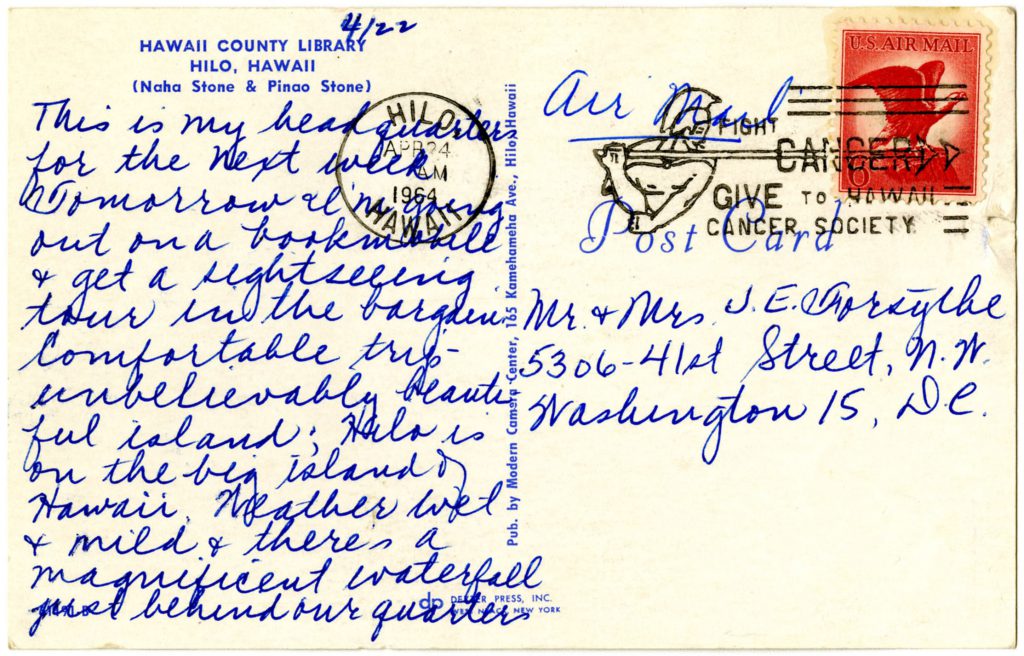 4/22
HAWAII COUNTY LIBRARY
HILO, HAWAII
(Naha Stone & Pinao Stone)
This is my headquarters
for the next week
Tomorrow I'm going
out on a bookmobile
& get a sightseeing
tour in the bargain.
Comfortable trip-
unbelievably beauti
ful island; Hilo is
on the big island of
Hawaii. Weather wet
& mild & there's a
magnificent waterfall
just behind our quarters
dp DEXTER PRESS, INC.
WEST NYACK, NEW YORK
Pub. by Modern Camera Center, 165 Kamehameha Ave., Hilo, Hawaii
HILO,
APR 24
AM
1964
HAWAII
Air Mail
FIGHT
CANCER
GIVE TO HAWAII
CANCER SOCIETY
U.S. AIR MAIL
6¢
Post Card
Mr. & Mrs. J. E. Forsythe
5306-41st Street, N.W.
Washington 15, D.C.